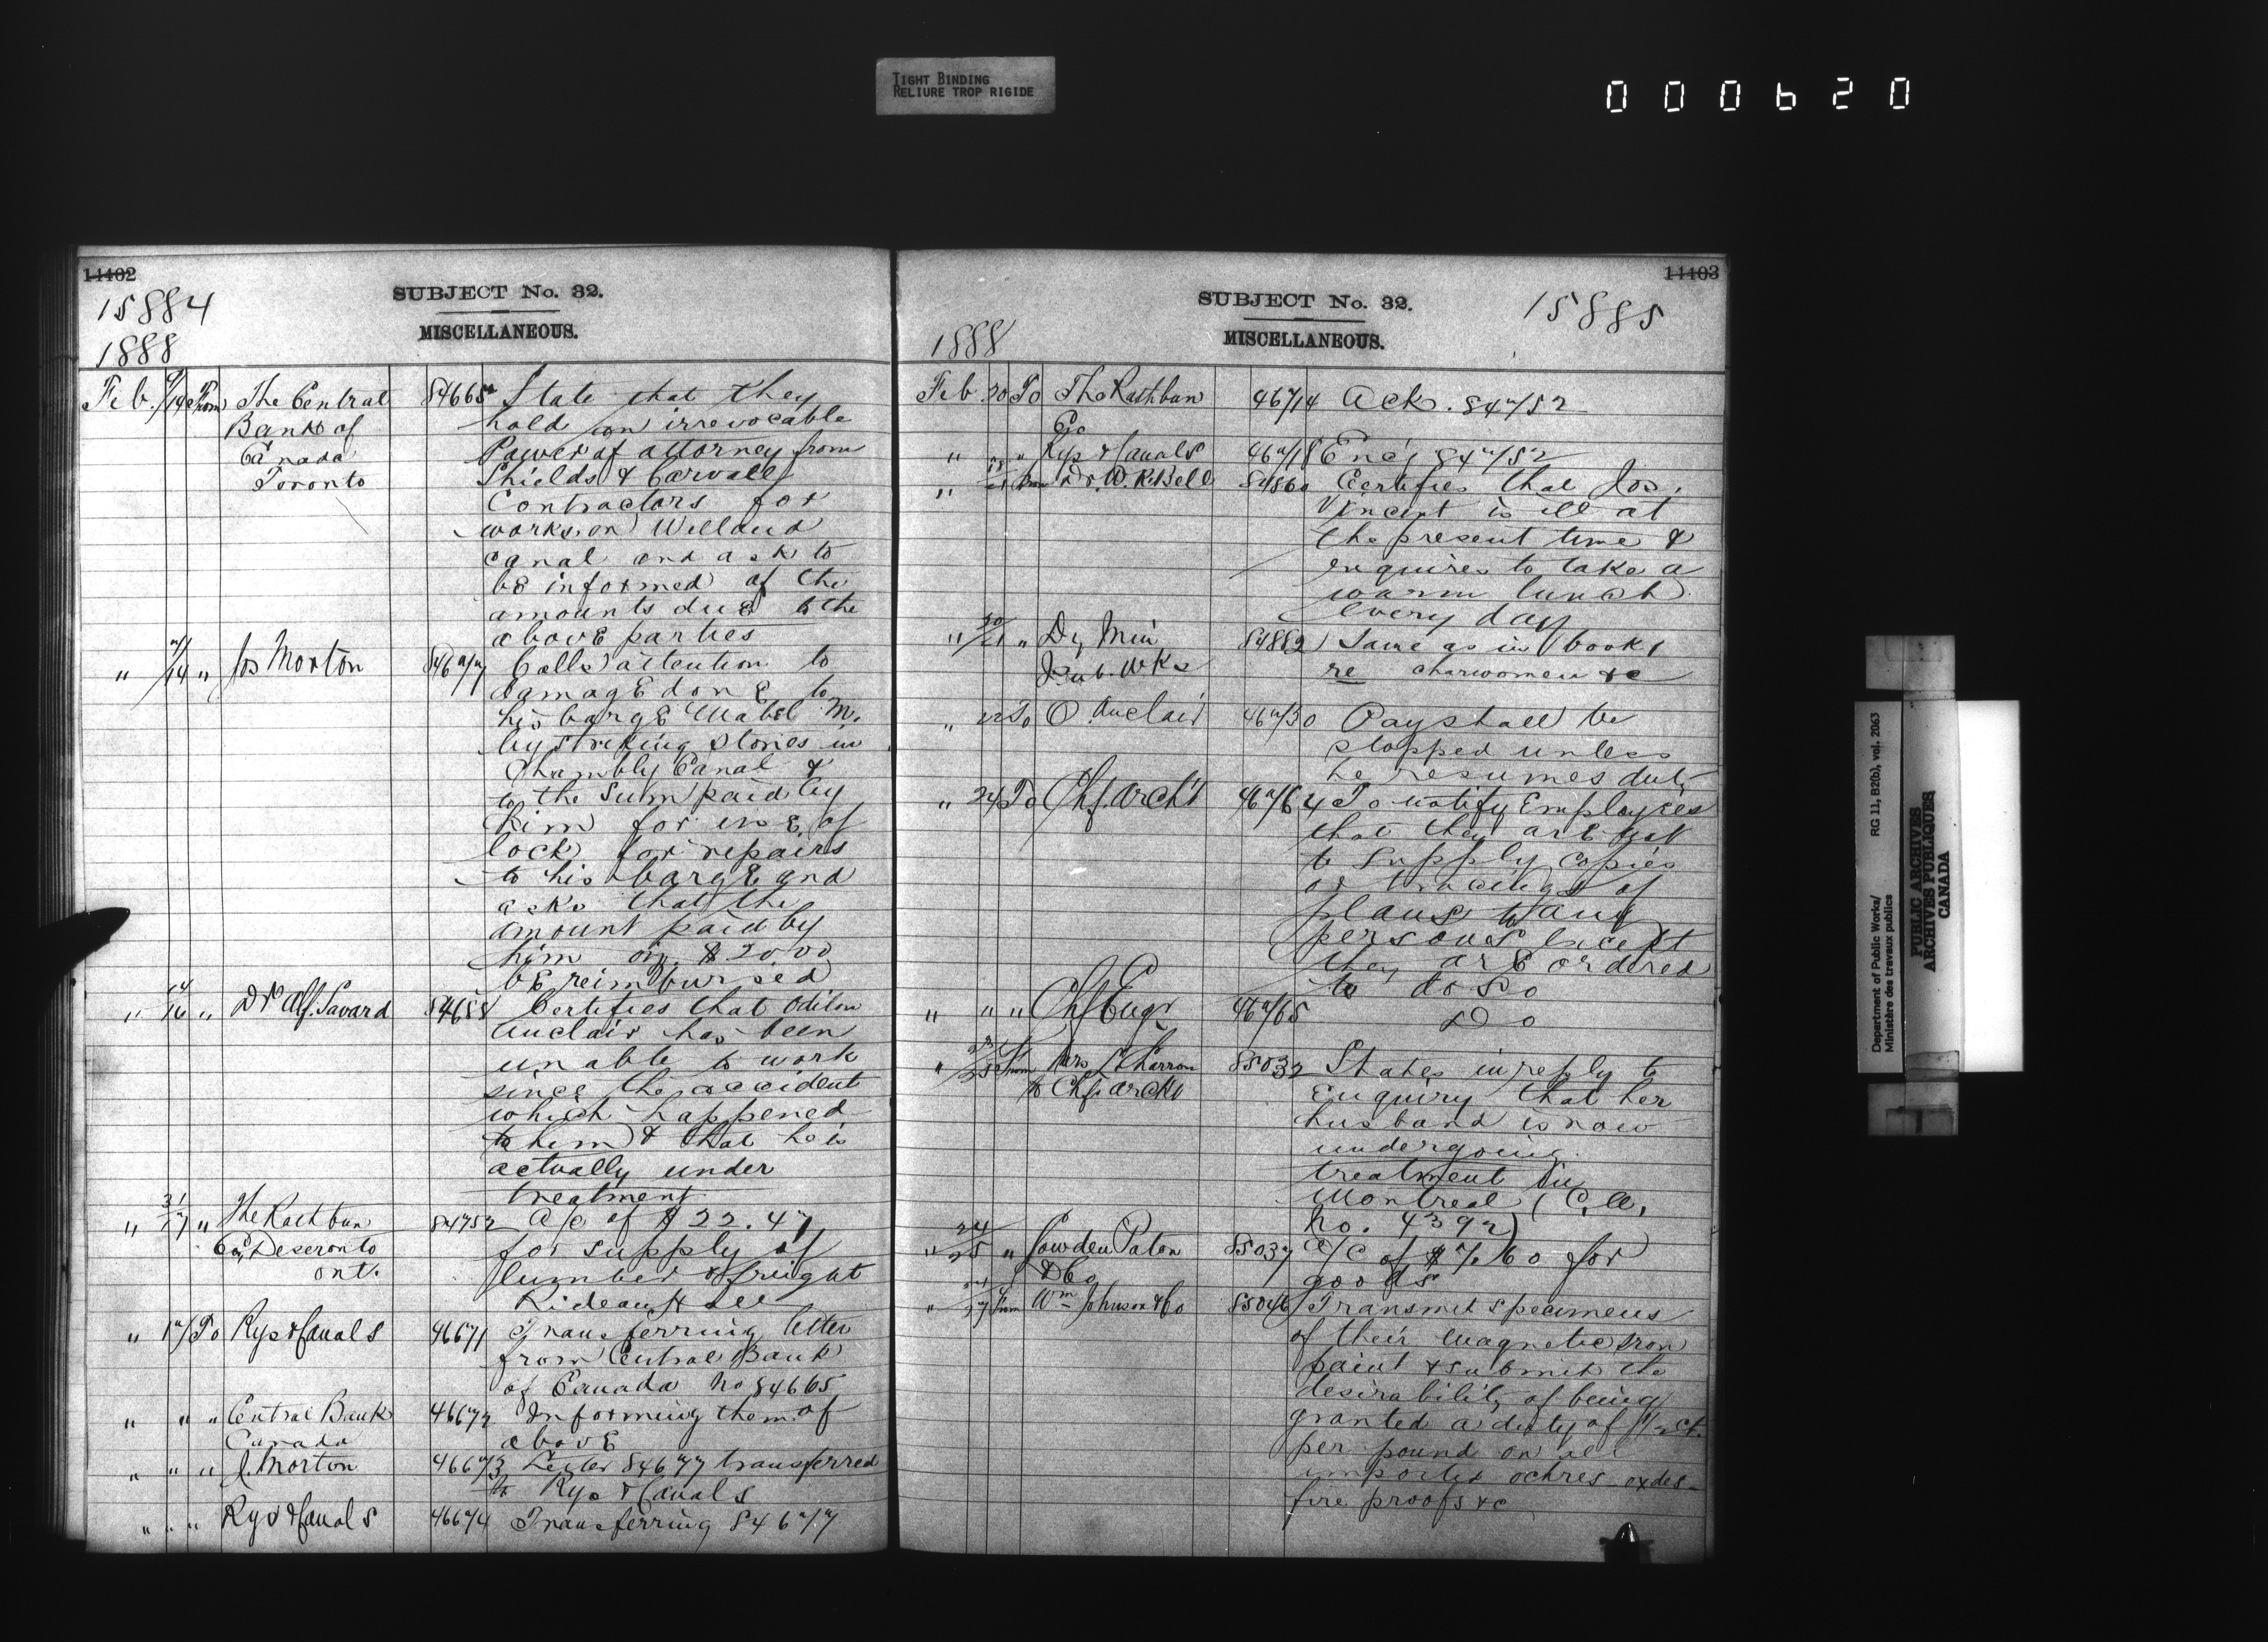 TIGHT BINDING
RELIURE TROP RIGIDE
000620
14402
15884
1888
SUBJECT No. 32.
MISCELLANEOUS.
Feb. 9/14 From The Central 84665 State that they
Bank of hold an irrevocable
Canada Power of attorney from
Toronto Shields & Carvell
Contractors for
works on Welland
canal and ask to
be informed of the
amounts due to the
above parties
" 7/14 " Jos Morton 84677 Calls attention to
damage done to
his barge Mabel M.
by striking stones in
Chambly Canal &
to the sum paid by
him for use of
lock for repairs
to his barge and
asks that the
amount paid by
him viz. $20.00
be reimbursed
" 14/16 " Dr Alf. Savard 84688 Certifies that Odilon
Auclair has been
unable to work
since the accident
which happened
to him & that he is
actually under
treatment
" 31/17 " The Rathbun 84752 a/c of $22.47
Co, Deseronto for supply of
ont. lumber & freight
Rideau Hall
" 17 To Rys & Canals 46671 Transferring letter
from Central Bank
of Canada No 84665
" " " Central Bank 46672 Informing them of
Canada above
" " " J. Morton 46673 Letter 84677 transferred
to Rys & Canals
" " " Rys & Canals 46674 Transferring 84677
14403
15885
SUBJECT No. 32.
MISCELLANEOUS.
1888
Feb 20 To The Rathbun 46714 Ack. 84752
Co
" " " Rys & Canals 46718 Enc'g 84752
" 18/21 From Dr. W. R. Bell 84860 Certifies that Jos.
Vincent is ill at
the present time &
requires to take a
warm lunch
every day
" 20/21 " Dy Min 84882 Same as in book 1
Pub. Wks re charwomen &c
" 22 To O. Auclair 46730 Pay shall be
stopped unless
he resumes duty
" 24 To Chf. Arch't 46764 To notify Employees
that they are not
to supply copies
or tracings of
plans to any
persons except
they are ordered
to do so
" " " Chf Engr 46765 Do
" 23/25 From Mrs L. Charron 85032 States in reply to
to Chf. Archt Enquiry that her
husband is now
undergoing
treatment in
Montreal (C.A.
No. 4392)
" 24/25 " Lowden Paton 85037 a/c of $7.60 for
& Co goods
" 24/27 From Wm Johnson & Co 85046 Transmit specimens
of their magnetic iron
paint & submit the
desirability of being
granted a duty of 1/2 ct.
per pound on all
imported ochres - oxdes -
fire proofs &c
Department of Public Works/
Ministère des travaux publics
RG 11, B2(b), vol. 2063
PUBLIC ARCHIVES
ARCHIVES PUBLIQUES
CANADA